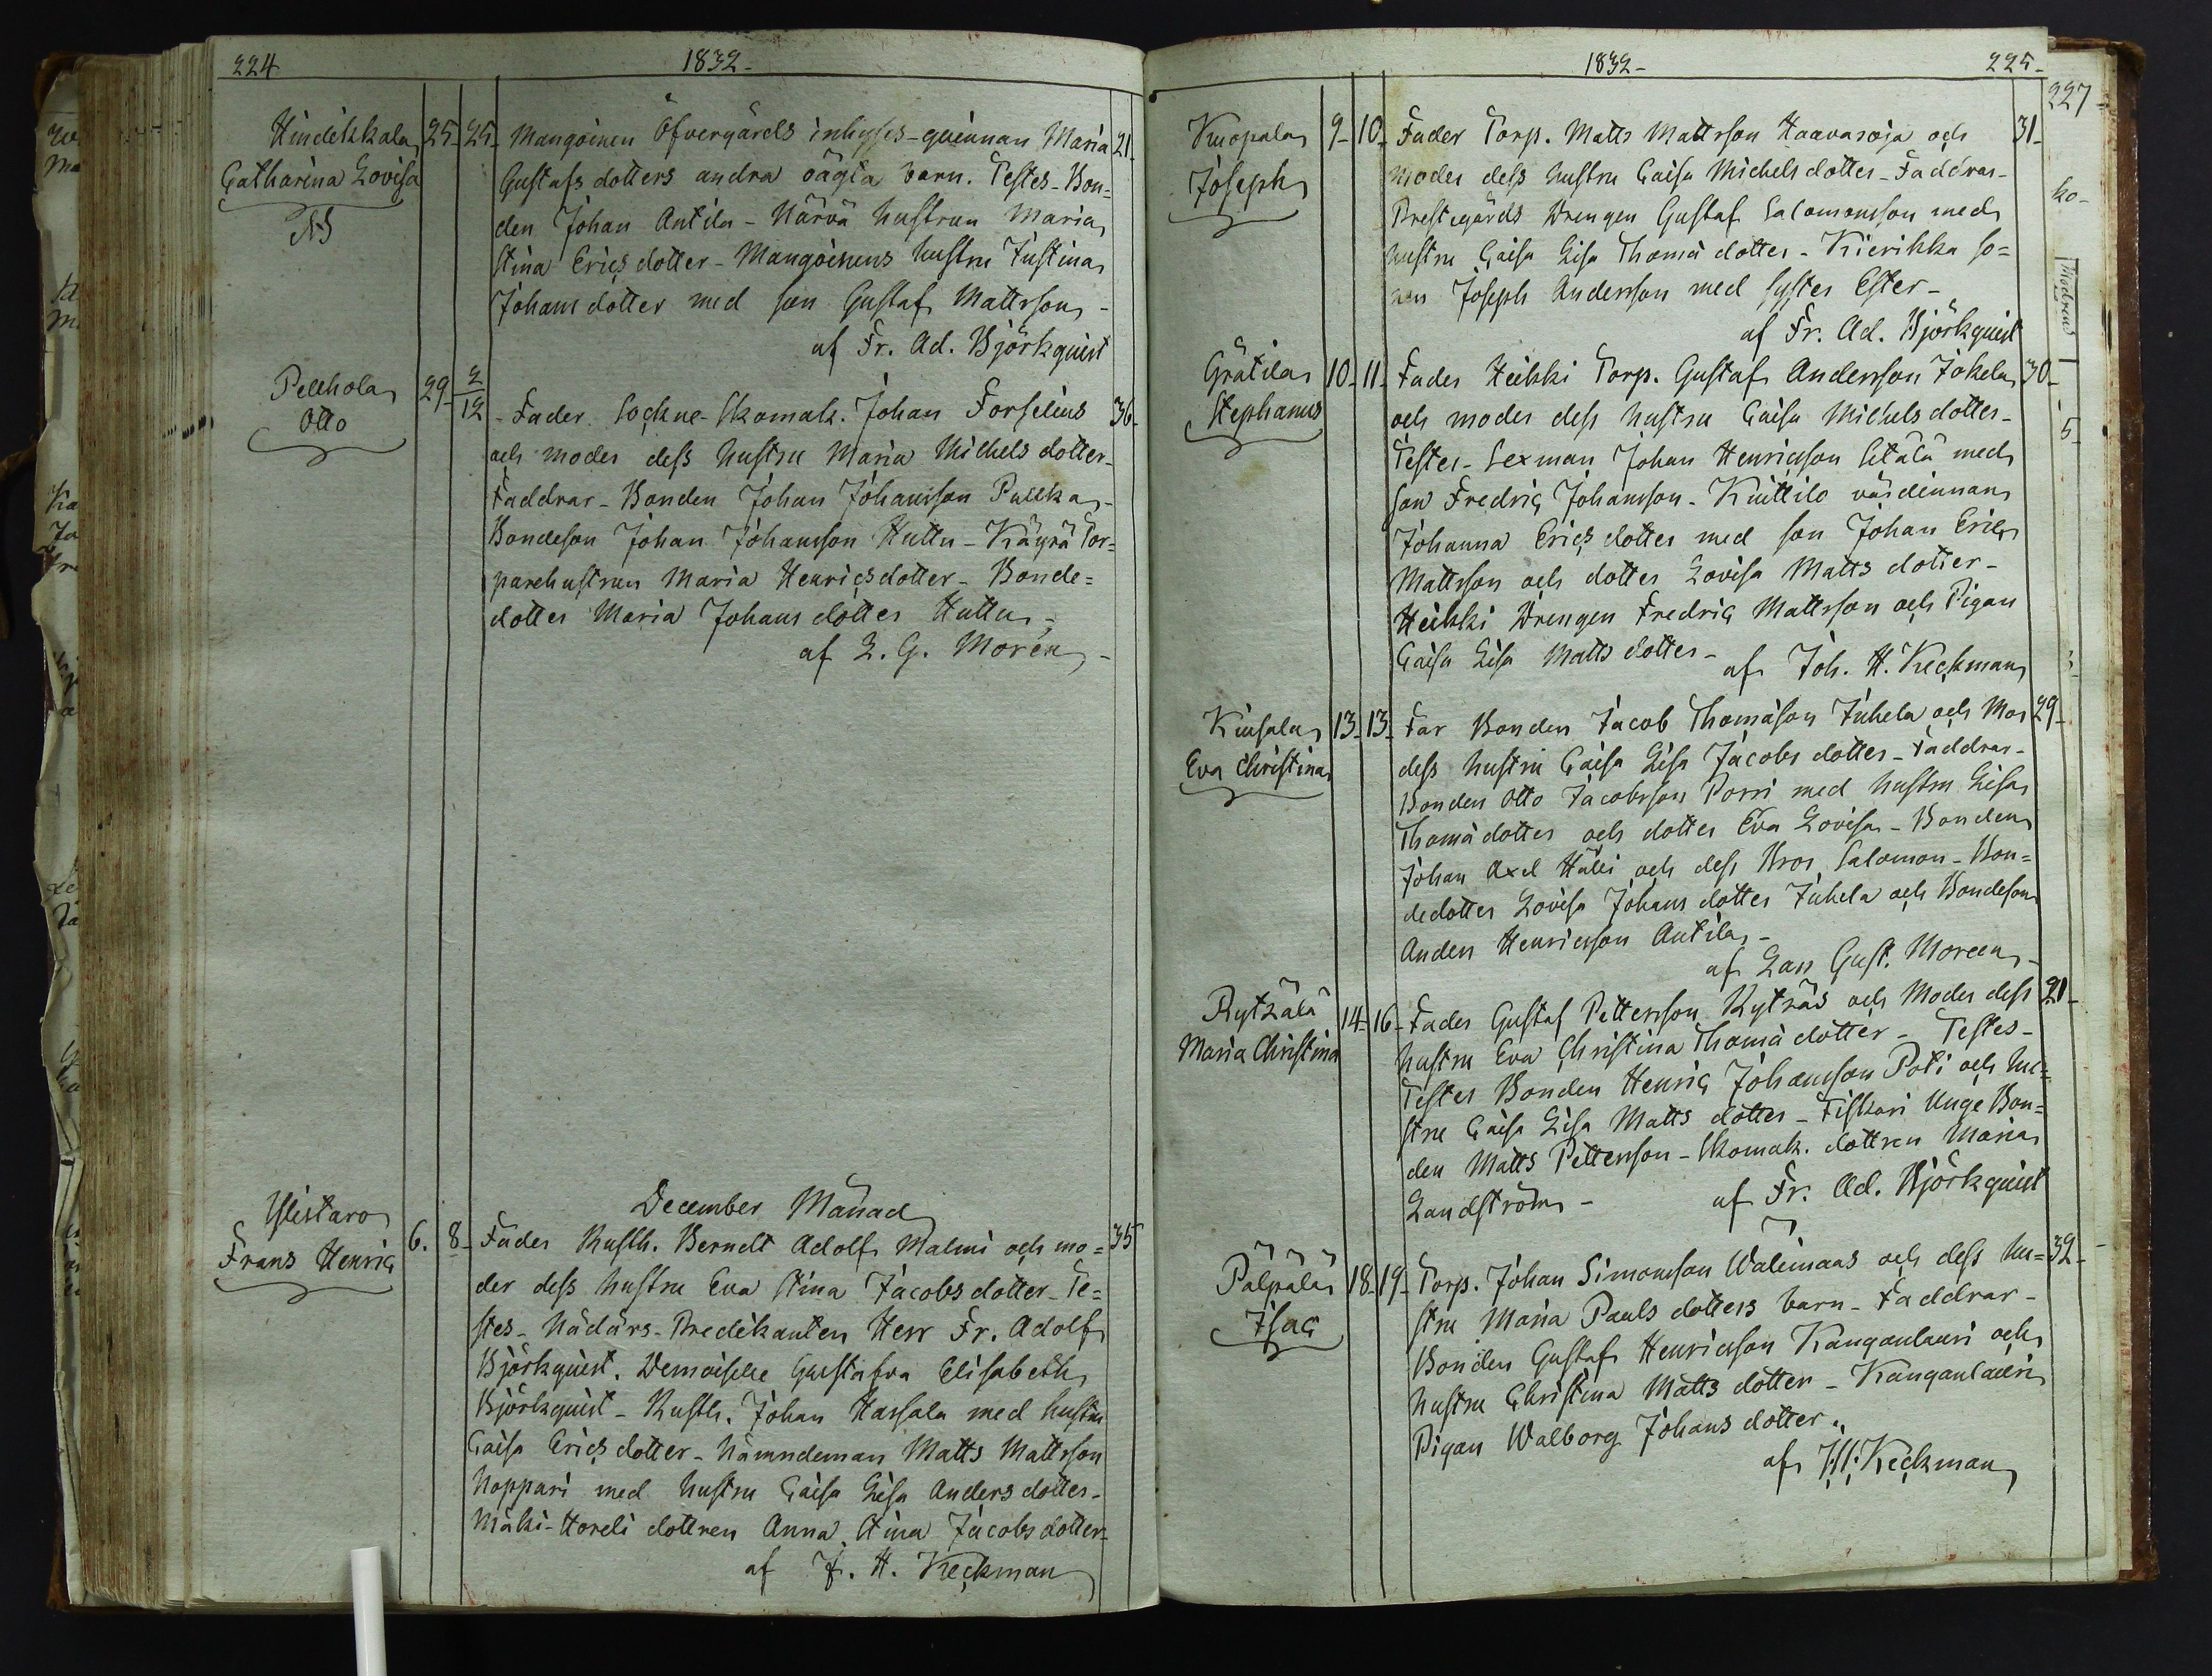 224
1832-
Hindikkala 25- 25- Mangoinen Öfvergårds inhyses-quinnan Maria 21-
Catharina Lovisa Gustafs dotters andra oägta barn. Testes- Bon=
NB den Johan Antila - Närvä hustrun Maria
Stina Erics dotter - Mangoinens hustru Justina
Johans dotter med son Gustaf Mattsson -
af Fr. Ad. Björkquist
Pellhola 29- 2/12 - Fader Sockne-Skomak. Johan Forselius 36-
Otto och moder dess hustru Maria Michels dotter-
Faddrar - Bonden Johan Johansson Pullka -
Bondeson Johan Johansson Huttu - Käyrä Tor=
parehustrun Maria Henricsdotter - Bonde=
dotter Maria Johans dotter Huttu -
af L. G. Morén -
December Månad
Ylistaro 6. 8- Fader Rusth. Berndt Adolf Malmi och mo= 35
Frans Henric der dess hustru Eva Stina Jacobs dotter - Te=
stes - Nådårs-Predikanten Herr Fr. Adolf
Björkquist. Demoiselle Gustafva Elisabeth
Björkquist - Rusth. Johan Hassala med hustru
Caisa Erics dotter - Nämndeman Matts Mattsson
Noppari med hustru Caisa Lisa Anders dotter-
Mäki-Horeli dottren Anna Stina Jacobs dotter-
af J. H. Keckman
1832-
225-
227-
Kuopala 9- 10- Fader Torp. Matts Mattsson Haavaroja och 31-
Joseph moder dess hustru Caisa Michels dotter - Faddrar-
Prestegårds Drengen Gustaf Salomonsson med
hustru Caisa Lisa Thomä dotter - Kierikka so=
nen Joseph Andersson med syster Ester -
af Fr. Ad. Björkquist
Grätila 10- 11- Fader Heikki Torp. Gustaf Andersson Jokela 30-
Stephanus och moder dess hustru Caisa Michels dotter-
Testes - Sexman Johan Henricsson Sitälä med
son Fredric Johansson - Kuittilo värdinnan
Johanna Erics dotter med son Johan Eric
Mattsson och dotter Lovisa Matts dotter -
Heikki Drengen Fredric Mattsson och Pigan
Caisa Lisa Matts dotter -
af Joh. H. Keckman
Kuusala 13- 13- Far Bonden Jacob Thomäson Juhela och Mor 29-
Eva Christina dess hustru Caisa Lisa Jacobs dotter - Faddrar-
Bonden Otto Jacobsson Porri med hustru Lisa
Thomä dotter och dotter Eva Lovisa - Bonden
Johan Axel Hälli och dess Bror Salomon - Bon=
dedotter Lovisa Johans dotter Juhela och Bondeson
Anders Henricsson Antila -
af Lars Gust. Moreen -
Rytkälä 14- 16- Fader Gustaf Pettersson Kyträs och Moder dess 21-
Maria Christina hustru Eva Christina Thomä dotter - Testes-
Testes Bonden Henric Johansson Poti och hu=
stru Caisa Lisa Matts dotter - Fiskari Unge Bon=
den Matts Pettersson - Skomak. dottren Maria
Landström -
af Fr. Ad. Björkquist
Pälpälä 18- 19- Torp. Johan Simonsson Walimaas och dess hu= 32-
Isac stru Maria Pauls dotters barn - Faddrar-
Bonden Gustaf Henricsson Kanganlauri och
hustru Christina Matts dotter - Kanganlauri
Pigan Walborg Johans dotter.
af J:H:Keckman